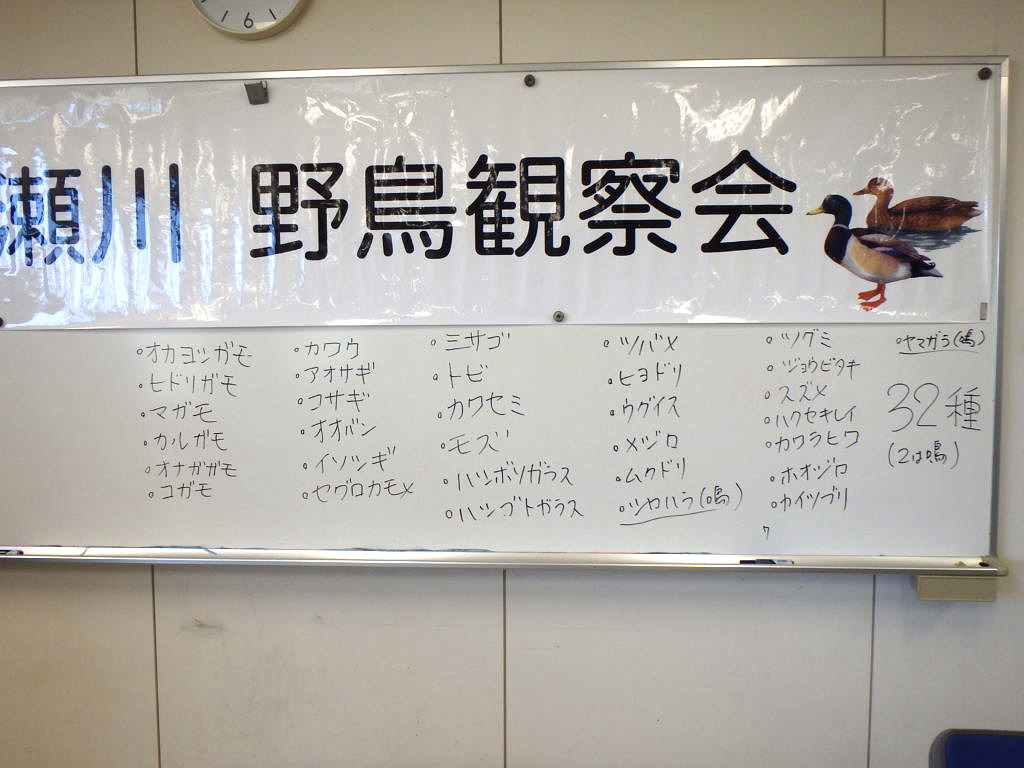 6
瀬川 野鳥観察会
オカヨシガモ
ヒドリガモ
マガモ
カルガモ
オナガガモ
コガモ
カワウ
アオサギ
コサギ
オオバン
イソシギ
セグロカモメ
ミサゴ
トビ
カワセミ
モズ
ハシボソガラス
ハシブトガラス
ツバメ
ヒヨドリ
ウグイス
メジロ
ムクドリ
シロハラ(鳴)
ツグミ
ジョウビタキ
スズメ
ハクセキレイ
カワラヒワ
ホオジロ
カイツブリ
7
ヤマガラ(鳴)
32種
(2は鳴)